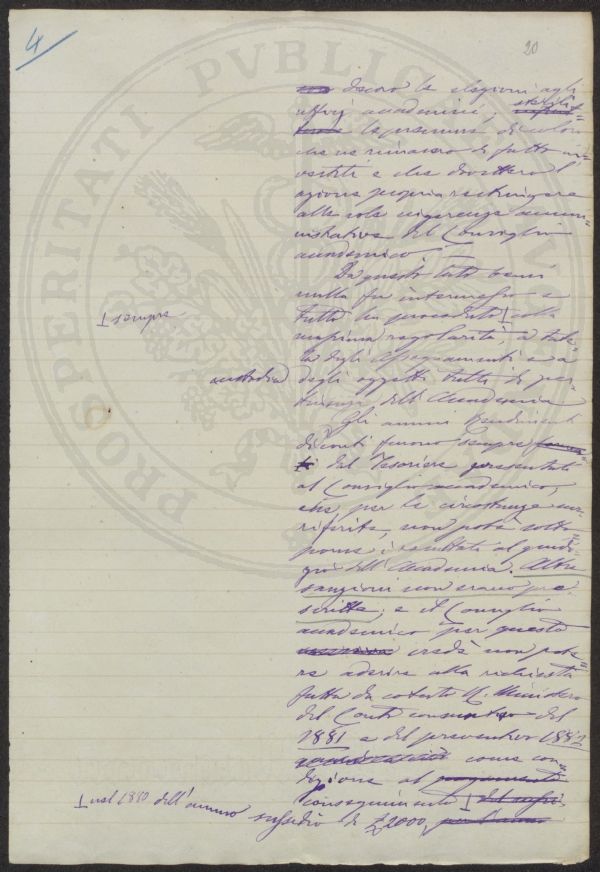 4
20
decaro le elezioni agli
ufficj accademici,
le persone di coloro
che ne rimasero di fatto in=
vestiti e che dovettero l'
azione propria restringere
alla sola ingerenza ammi=
nistrativa del Consiglio
accademico.
Da questo lato però
nulla fu intermesso e
tutto ha proceduto colla
sempre
massima regolarità, a tute=
la degli assegnamenti e a
custodia degli oggetti tutti di per=
tinenza dell'Accademia
Gli annui Rendimenti
di conti furono sempre
dal Tesoriere presentati
al Consiglio accademico,
che, per le circostanze sur=
riferite, non potè sotto=
porne i resultati al giudi=
zio dell'Accademia. Altre
sanzioni non erano pre=
scritte; e il Consiglio
accademico per questo
credè non pote=
re aderire alla richiesta
fatta da cotesto R. Ministero
del Conto consuntivo del
1881 e del preventivo 1882
come con=
dizione al
conseguimento
nel 1880 dell'annuo sussidio di £2000,
PROSPERITATI PVBLICAE